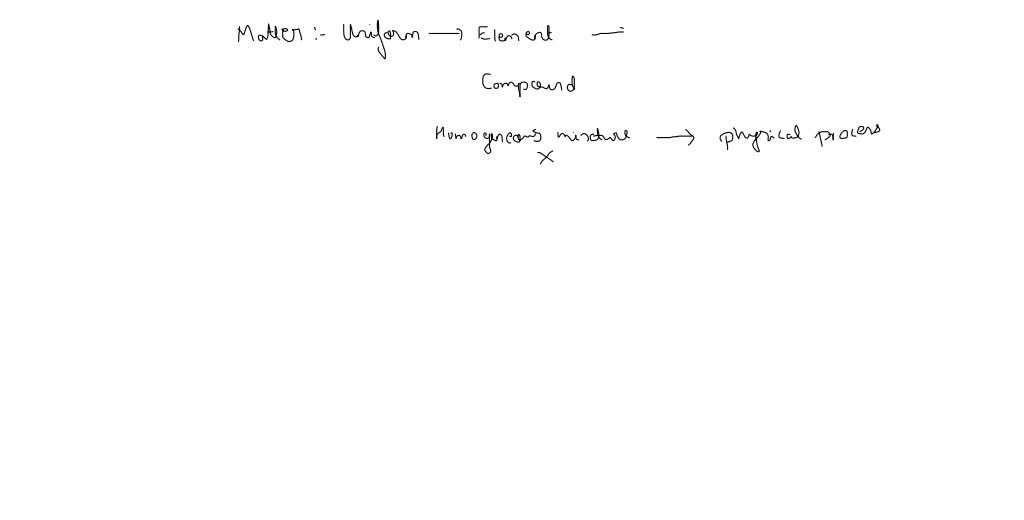 Matter :- Uniform → Element —
Compound
Homogeneous mixture → physical process
×